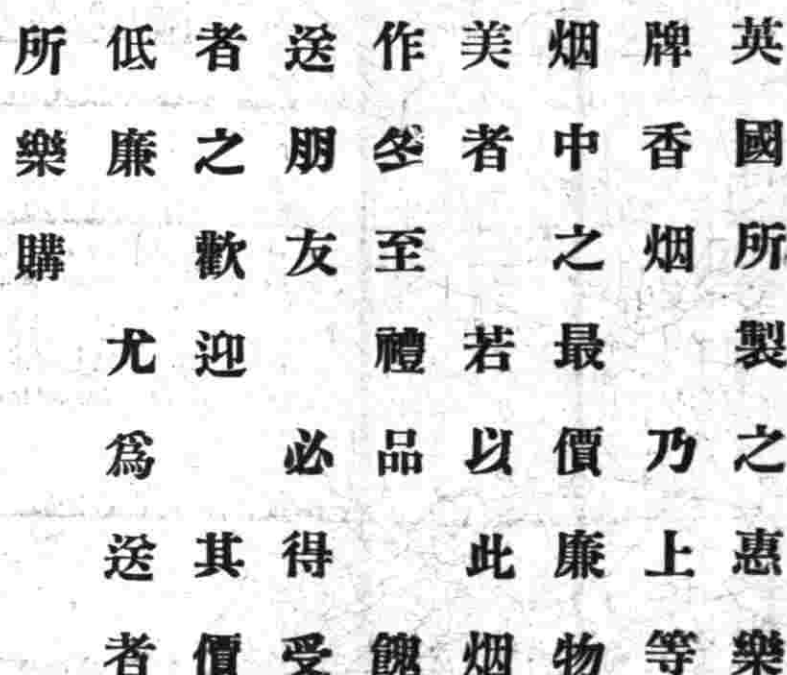 英國所製之惠樂
牌香烟 乃上等
烟中之最價廉物
美者 若以此烟
作冬至禮品 餽
送朋友 必得受
者之歡迎 其價
低廉 尤爲送者
所樂購